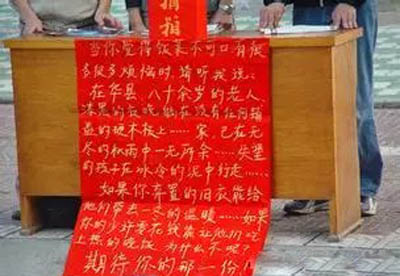 捐
当你觉得饭菜不可口有很
多很多烦恼时,请听我说:
在华县,八十余岁的老人
漆黑的夜晚躺在没有任何铺
盖的硬木板上……家,已在无
尽的秋雨中一无所余……失望
的孩子在冰冷的泥中行走……
如果你弃置的旧衣能给
他们带去一冬的温暖……如果
你的少许零花钱能让他们吃
上热的晚饭 为什么不呢?
期待你的那一份!!